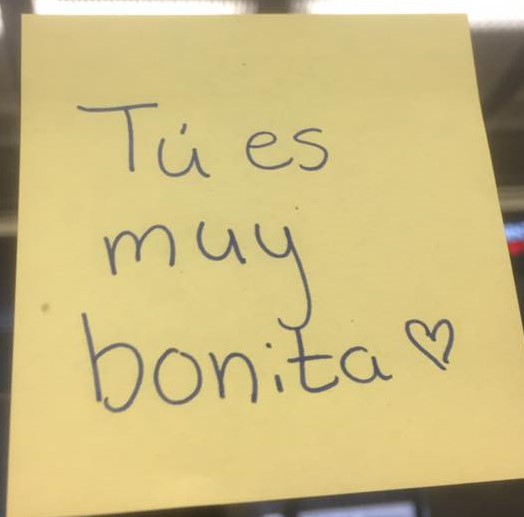 Tú es
muy
bonita ♡